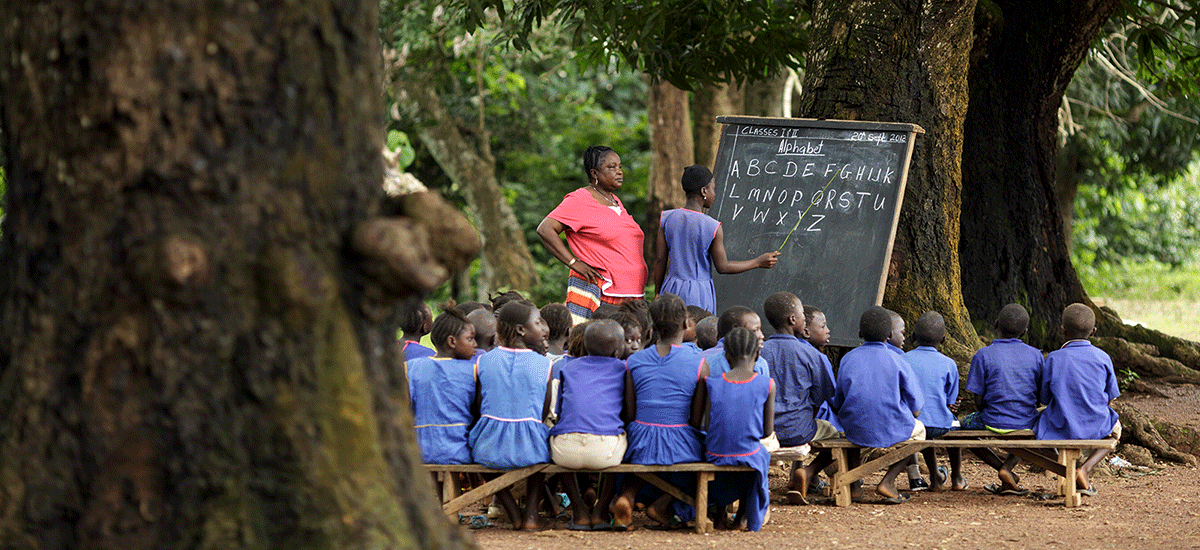 CLASSES I & II 20th Sept. 2012
Alphabet
A B C D E F G H I J K
L M N O P Q R S T U
V W X Y Z